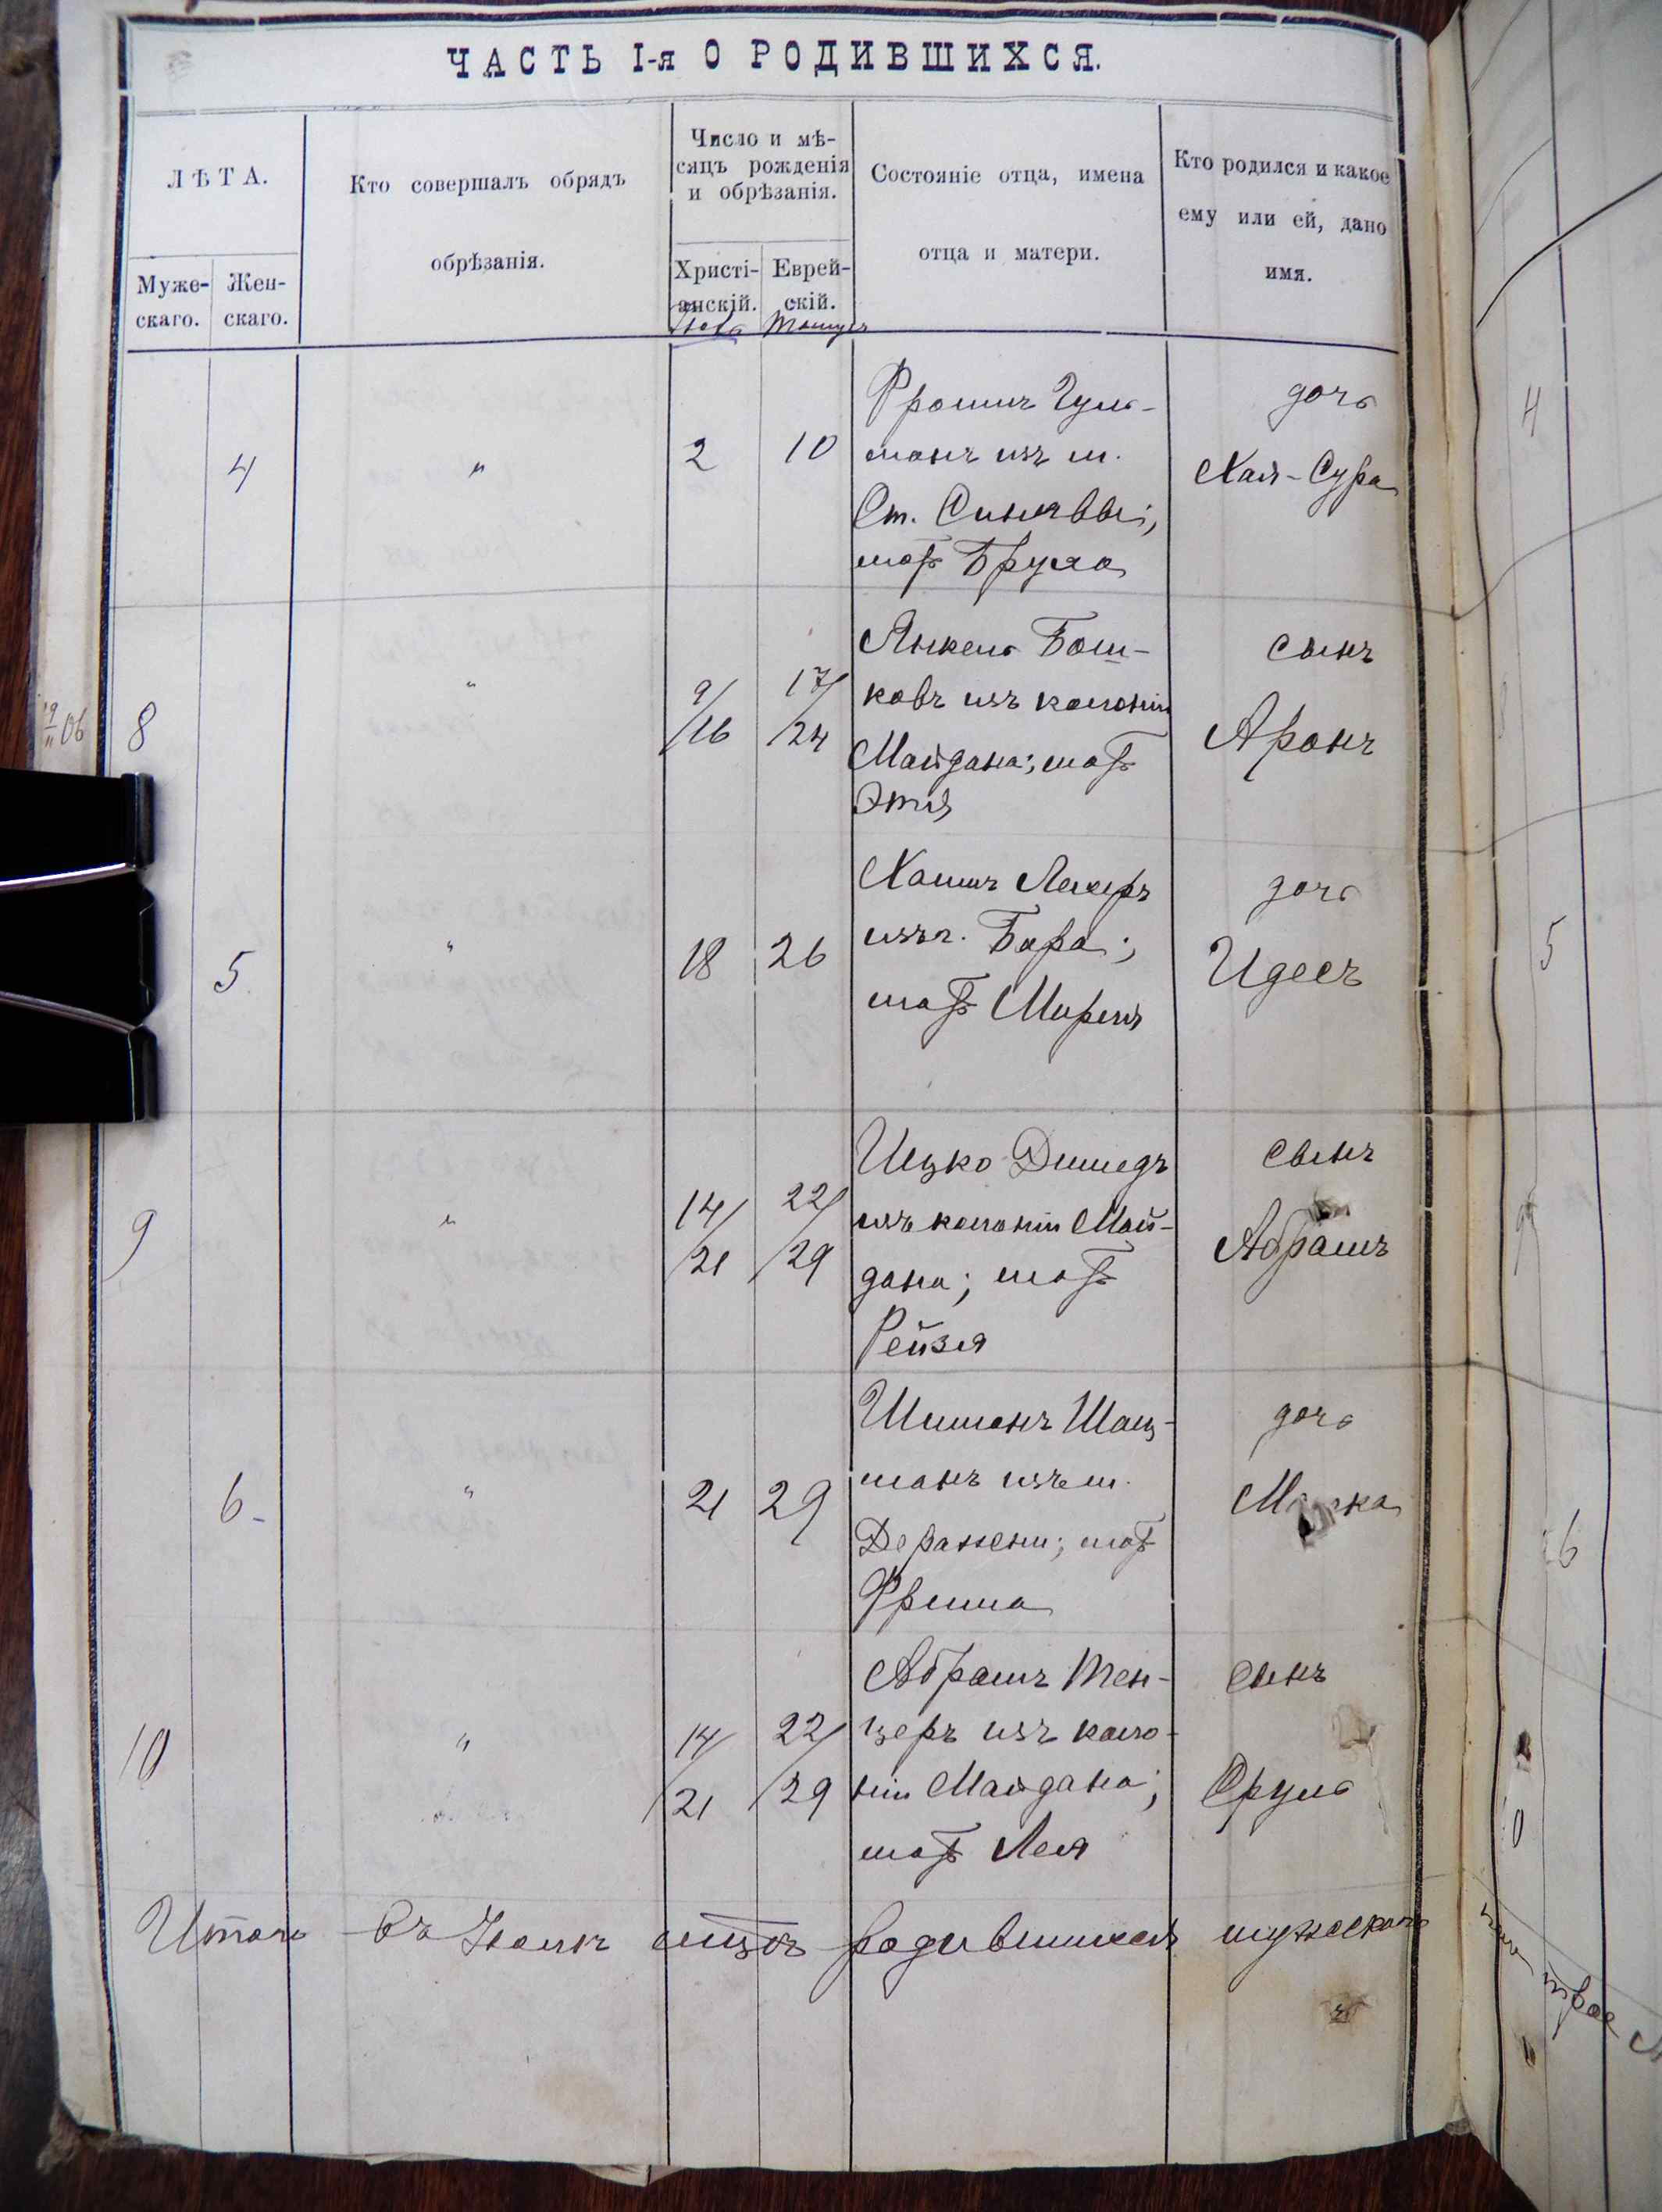 ЧАСТЬ I-я О РОДИВШИХСЯ.
ЛѢТА.
Муже-
скаго.
Жен-
скаго.
Кто совершалъ обрядъ
обрѣзанія.
Число и мѣ-
сяцъ рожденія
и обрѣзанія.
Христі-
анскій.
Еврей-
скій.
Состояніе отца, имена
отца и матери.
Кто родился и какое
ему или ей, дано
имя.
4
"
2
10
Фроимъ Гуль-
манъ изъ м.
Ст. Синявы;
мать Бруха
дочь
Хая-Сура
8
"
9/
/16
17/
/24
Янкель Бош-
ковъ изъ колоніи
Майдана; мать
Этя
сынъ
Аронъ
5
"
18
26
Хаимъ
изъ г. Бара;
мать Миремъ
дочь
Идесъ
9
"
14/
/21
22/
/29
Ицко
изъ колоніи Май-
дана; мать
Рейзя
сынъ
Абрамъ
6
"
21
29
Шимонъ Шац-
манъ изъ м.
Деражни; мать
Фрима
дочь
10
"
14/
/21
22/
/29
Абрамъ Тен-
церъ изъ коло-
ніи Майдана;
мать Лея
сынъ
Сруль
Итого въ Іюнѣ мцѣ родившихся мужескаго
4
5
9
6